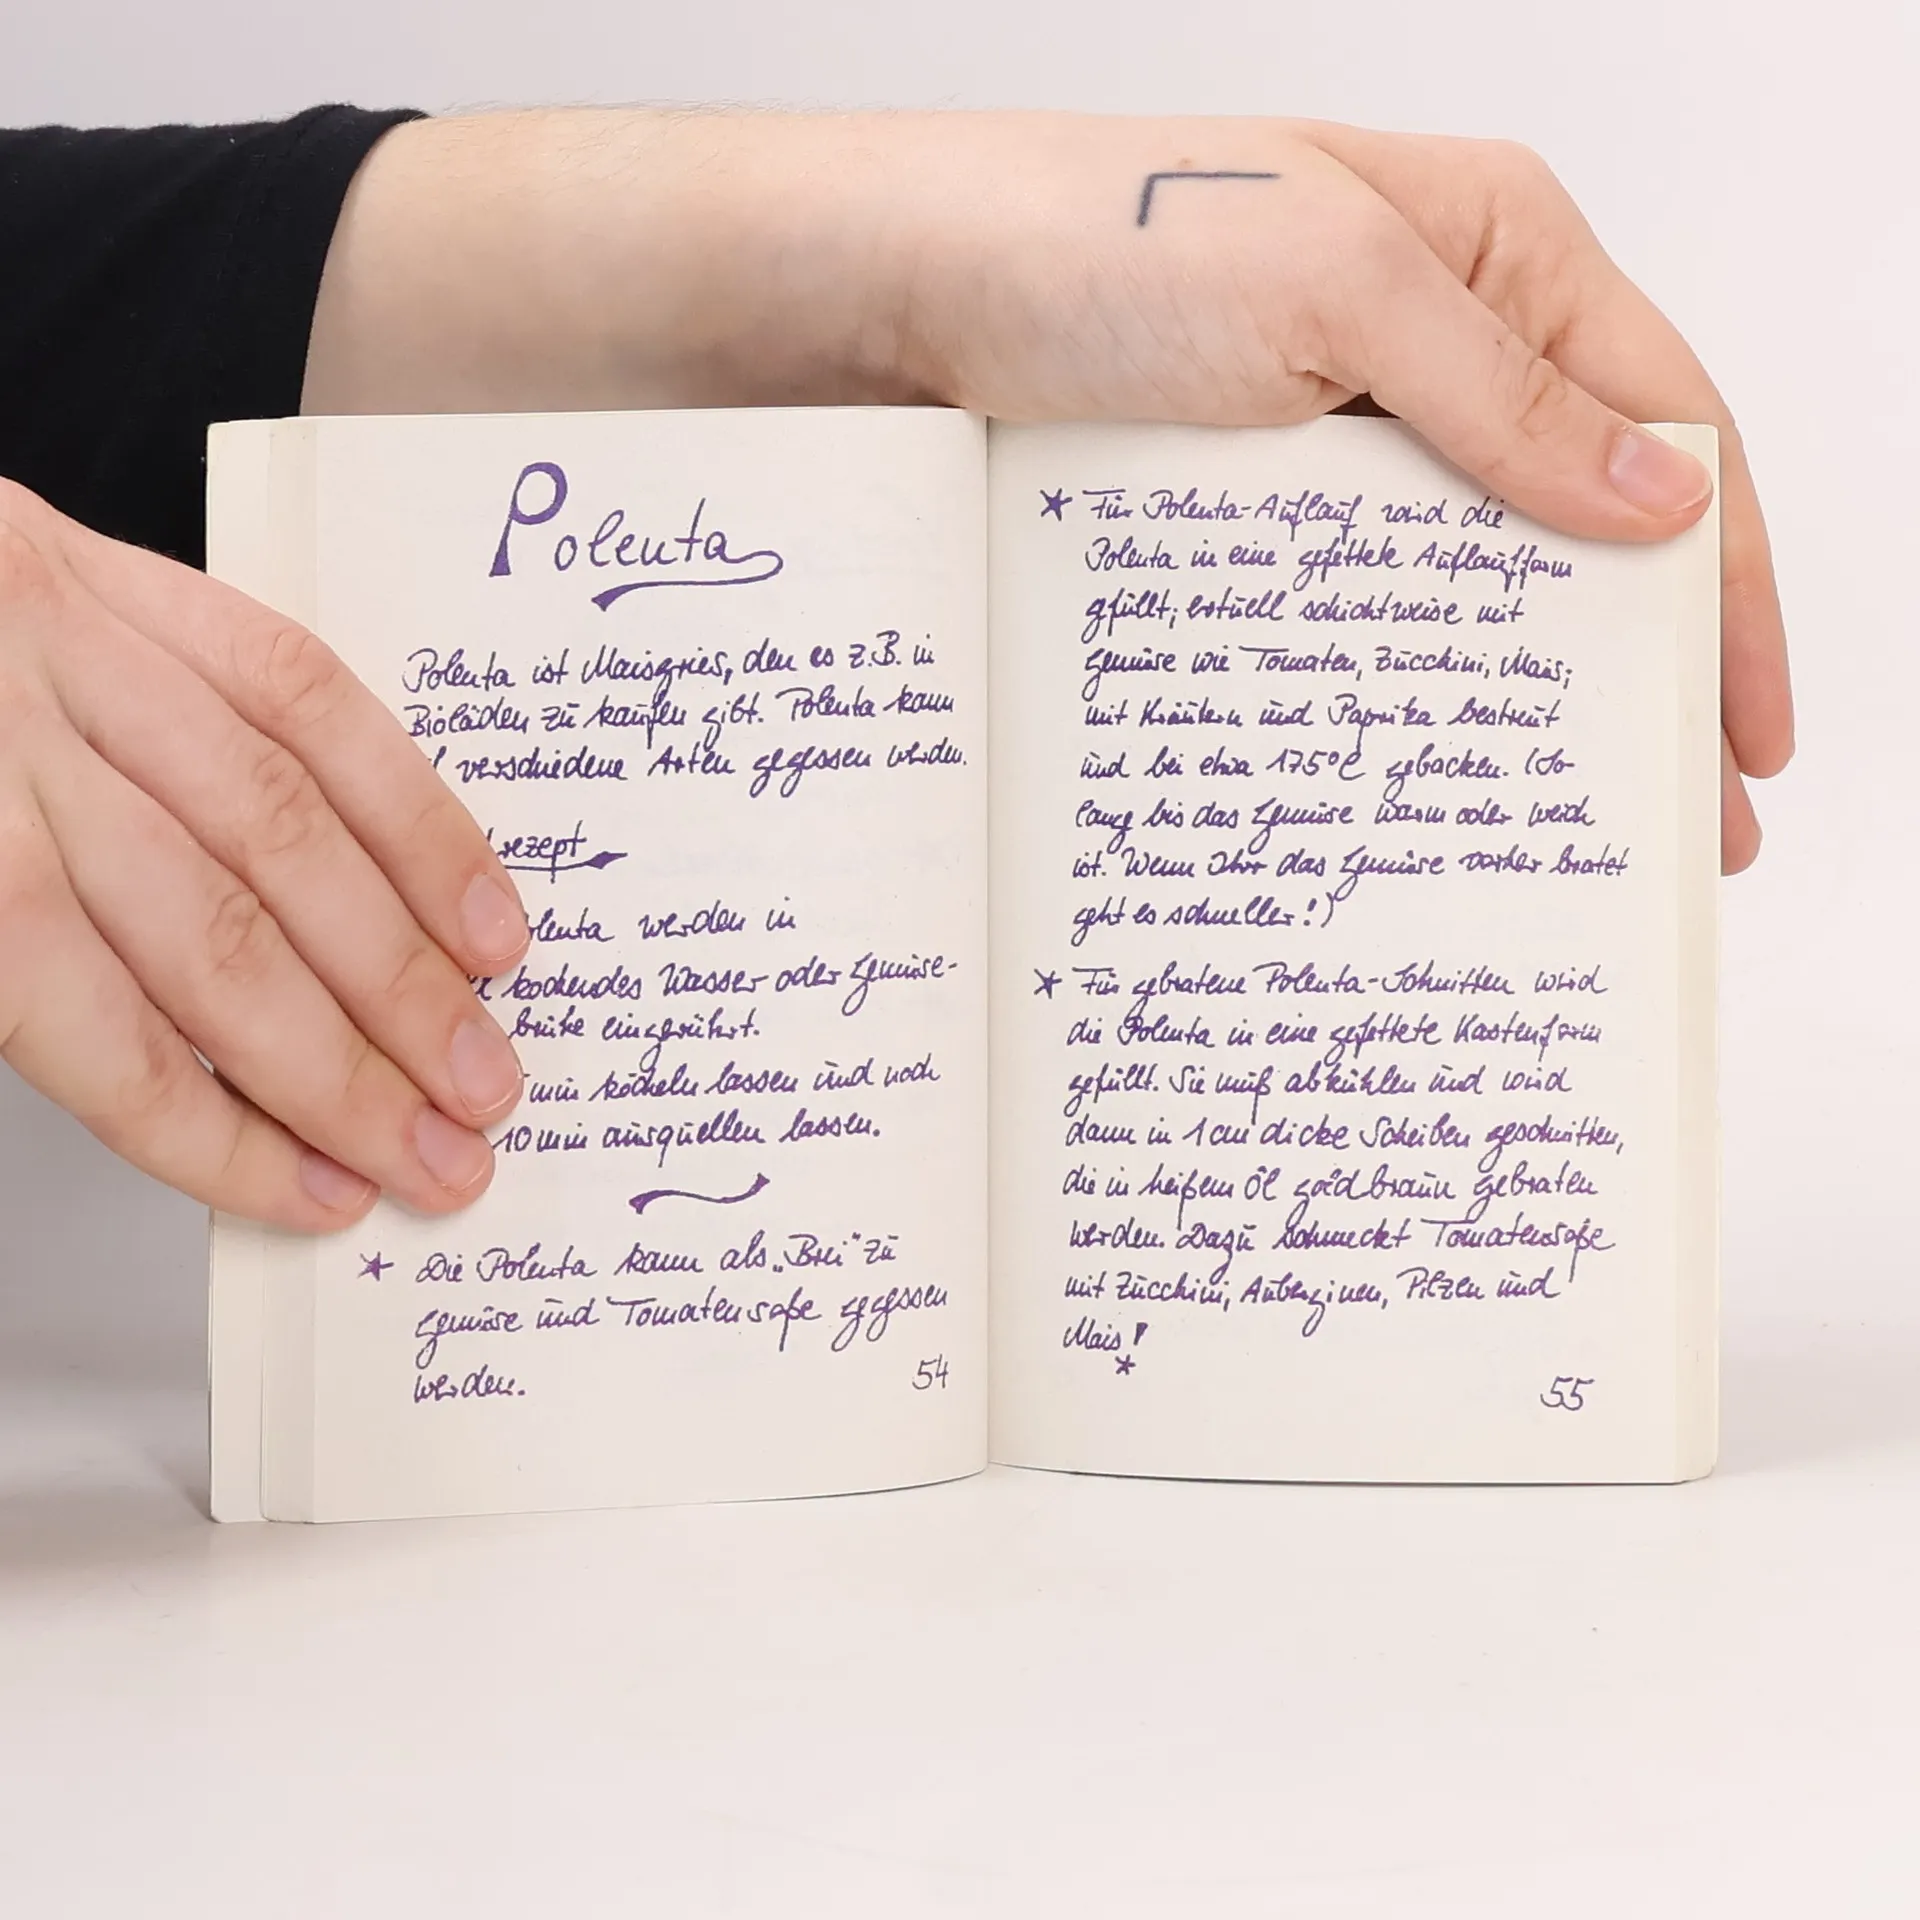 Polenta
Polenta ist Maisgries, den es z.B. in
Bioläden zu kaufen gibt. Polenta kann
verschiedene Arten gegessen werden.
rezept
lenta werden in
kochendes Wasser oder Gemüse-
brühe eingerührt.
min köcheln lassen und noch
10 min ausquellen lassen.
* Die Polenta kann als „Brei“ zu
Gemüse und Tomatensoße gegessen
werden.
54
* Für Polenta-Auflauf wird die
Polenta in eine gefettete Auflaufform
gefüllt; evtuell schichtweise mit
Gemüse wie Tomaten, Zucchini, Mais;
mit Kräutern und Paprika bestreut
und bei etwa 175°C gebacken. (So-
lang bis das Gemüse warm oder weich
ist. Wenn Ihr das Gemüse vorher bratet
geht es schneller!)
* Für gebratene Polenta-Schnitten wird
die Polenta in eine gefettete Kastenform
gefüllt. Sie muß abkühlen und wird
dann in 1cm dicke Scheiben geschnitten,
die in heißem Öl goldbraun gebraten
werden. Dazu schmeckt Tomatensoße
mit Zucchini, Auberginen, Pilzen und
Mais!
*
55